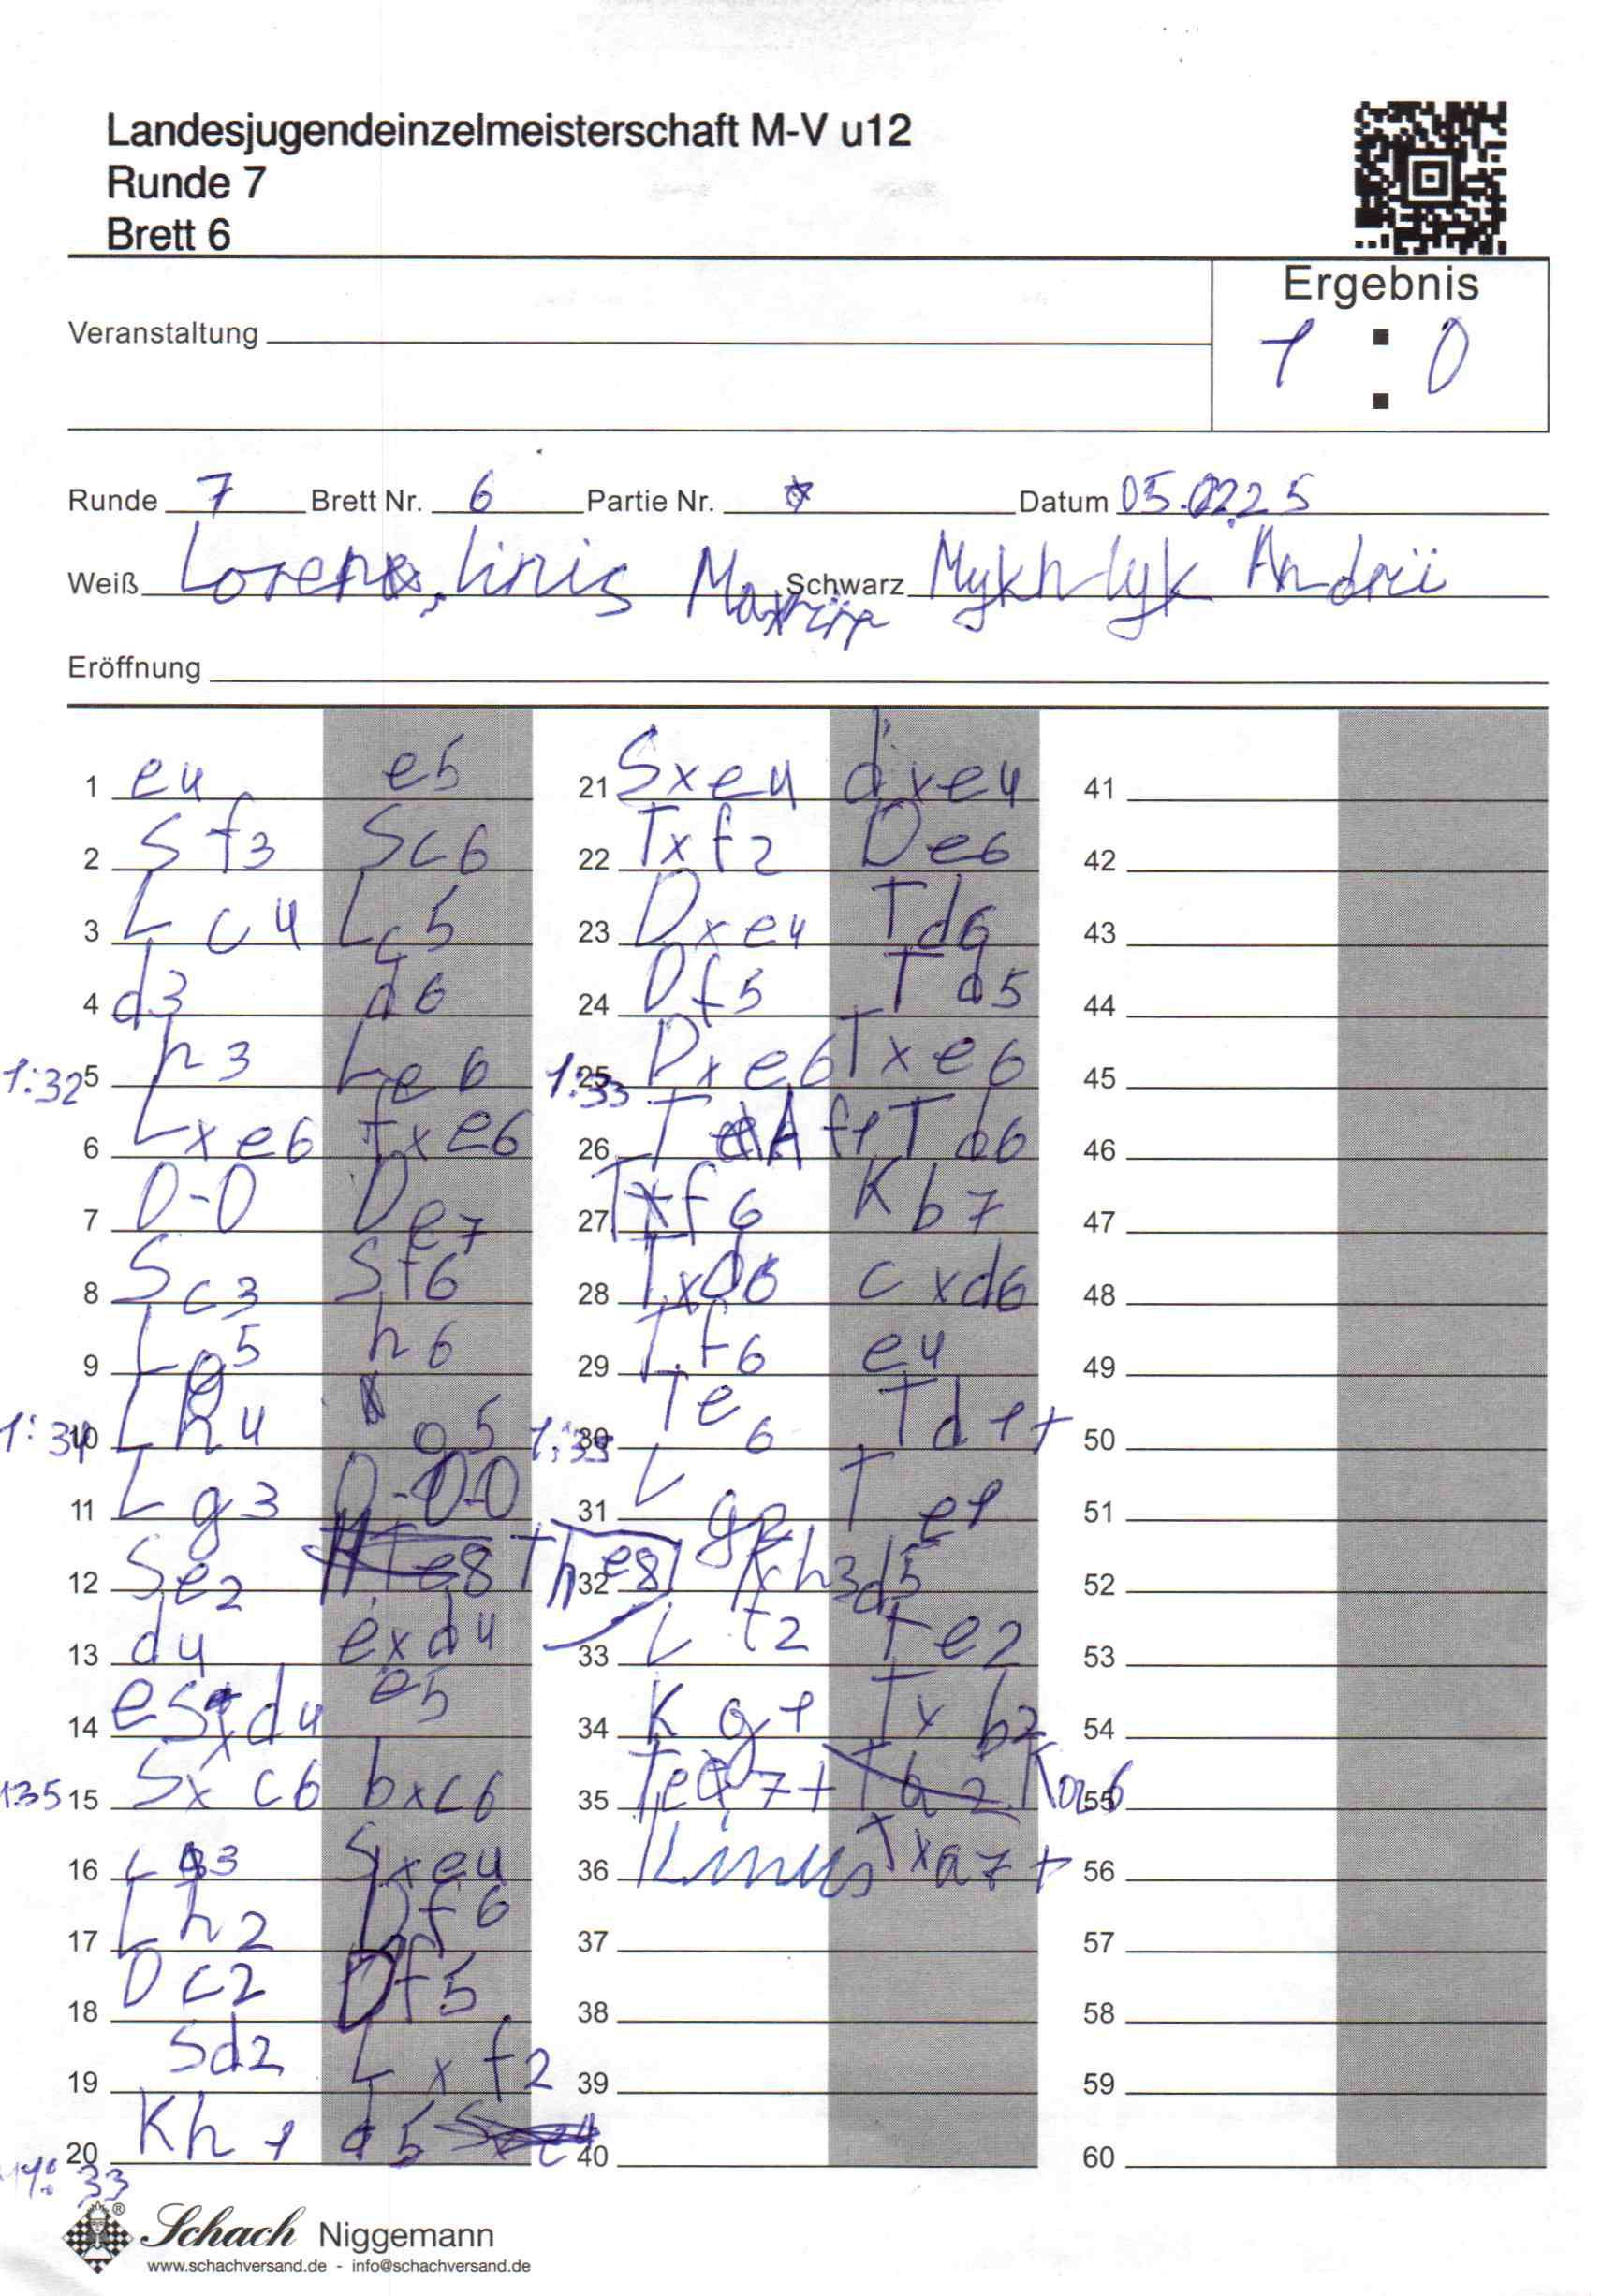 Landesjugendeinzelmeisterschaft M-V u12
Runde 7
Brett 6
Ergebnis
Veranstaltung
1 : 0
Runde 7 Brett Nr. 6 Partie Nr. Datum 05.02.25
Weiß Schwarz Andrii
Eröffnung
1 e4 e5
2 Sf3 Sc6
3 Lc4 Lc5
4 d3 d6
1:32 5 h3 Le6
6 Lxe6 fxe6
7 0-0 De7
8 Sc3 Sf6
9 Lg5 h6
1:34 10 Lh4 g5
11 Lg3 0-0-0
12 Se2 The8
13 d4 exd4
14 eSxd4 e5
135 15 Sxc6 bxc6
16 Sxe4
17 Lh2 Df6
18 Dc2 Df5
19 Sd2 Lxf2
20 Kh1 d5
33
21 Sxe4 dxe4
22 Txf2 De6
23 Dxe4 Td6
24 Df5 Td5
1:33 25 Dxe6 Txe6
26 T f1 Td6
27 Txf6 Kb7
28 Txd6 cxd6
29 Tf6 e4
1:35 30 Te6 Td1+
31 L g1 Te1
32 Kh3 d5
33 L f2 Te2
34 Kg1 Txb2
35 Te7+ Ka6
36 Linus Txa7+
37
38
39
40
41
42
43
44
45
46
47
48
49
50
51
52
53
54
55
56
57
58
59
60
Schach Niggemann
www.schachversand.de - info@schachversand.de